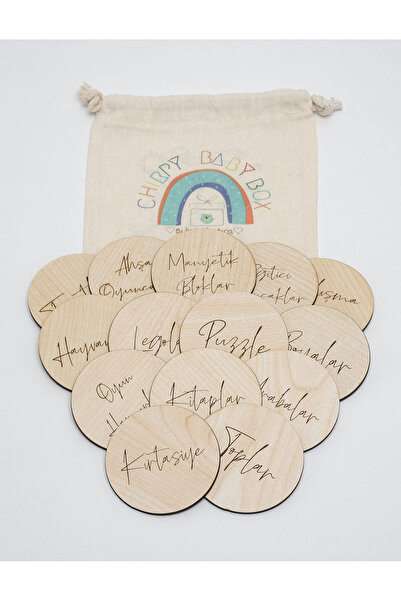 CHIRPY BABY BOX
Ahşa
Oyunca
Manyetik
Bloklar
Eğitici
caklar
ışma
Hayvan
Legola
Puzzle
Boyalar
Oyun
Kitaplar
Arabalar
Kırtasiye
Toplar